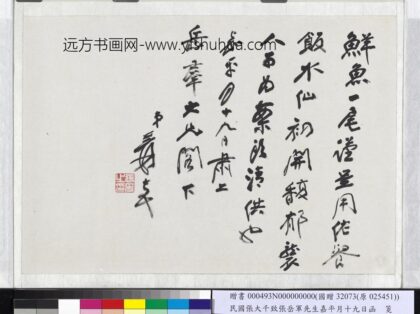 远方书画网-www.yishuhua.com
鮮魚一尾謹呈用佐餐
飯水仙初開馥郁襲
人可為案頭清供也
嘉平月十九日肅上
岳軍大兄閣下
弟爰
贈書 000493N000000000(國贈 32073(原 025451))
民國張大千致張岳軍先生嘉平月十九日函 箋